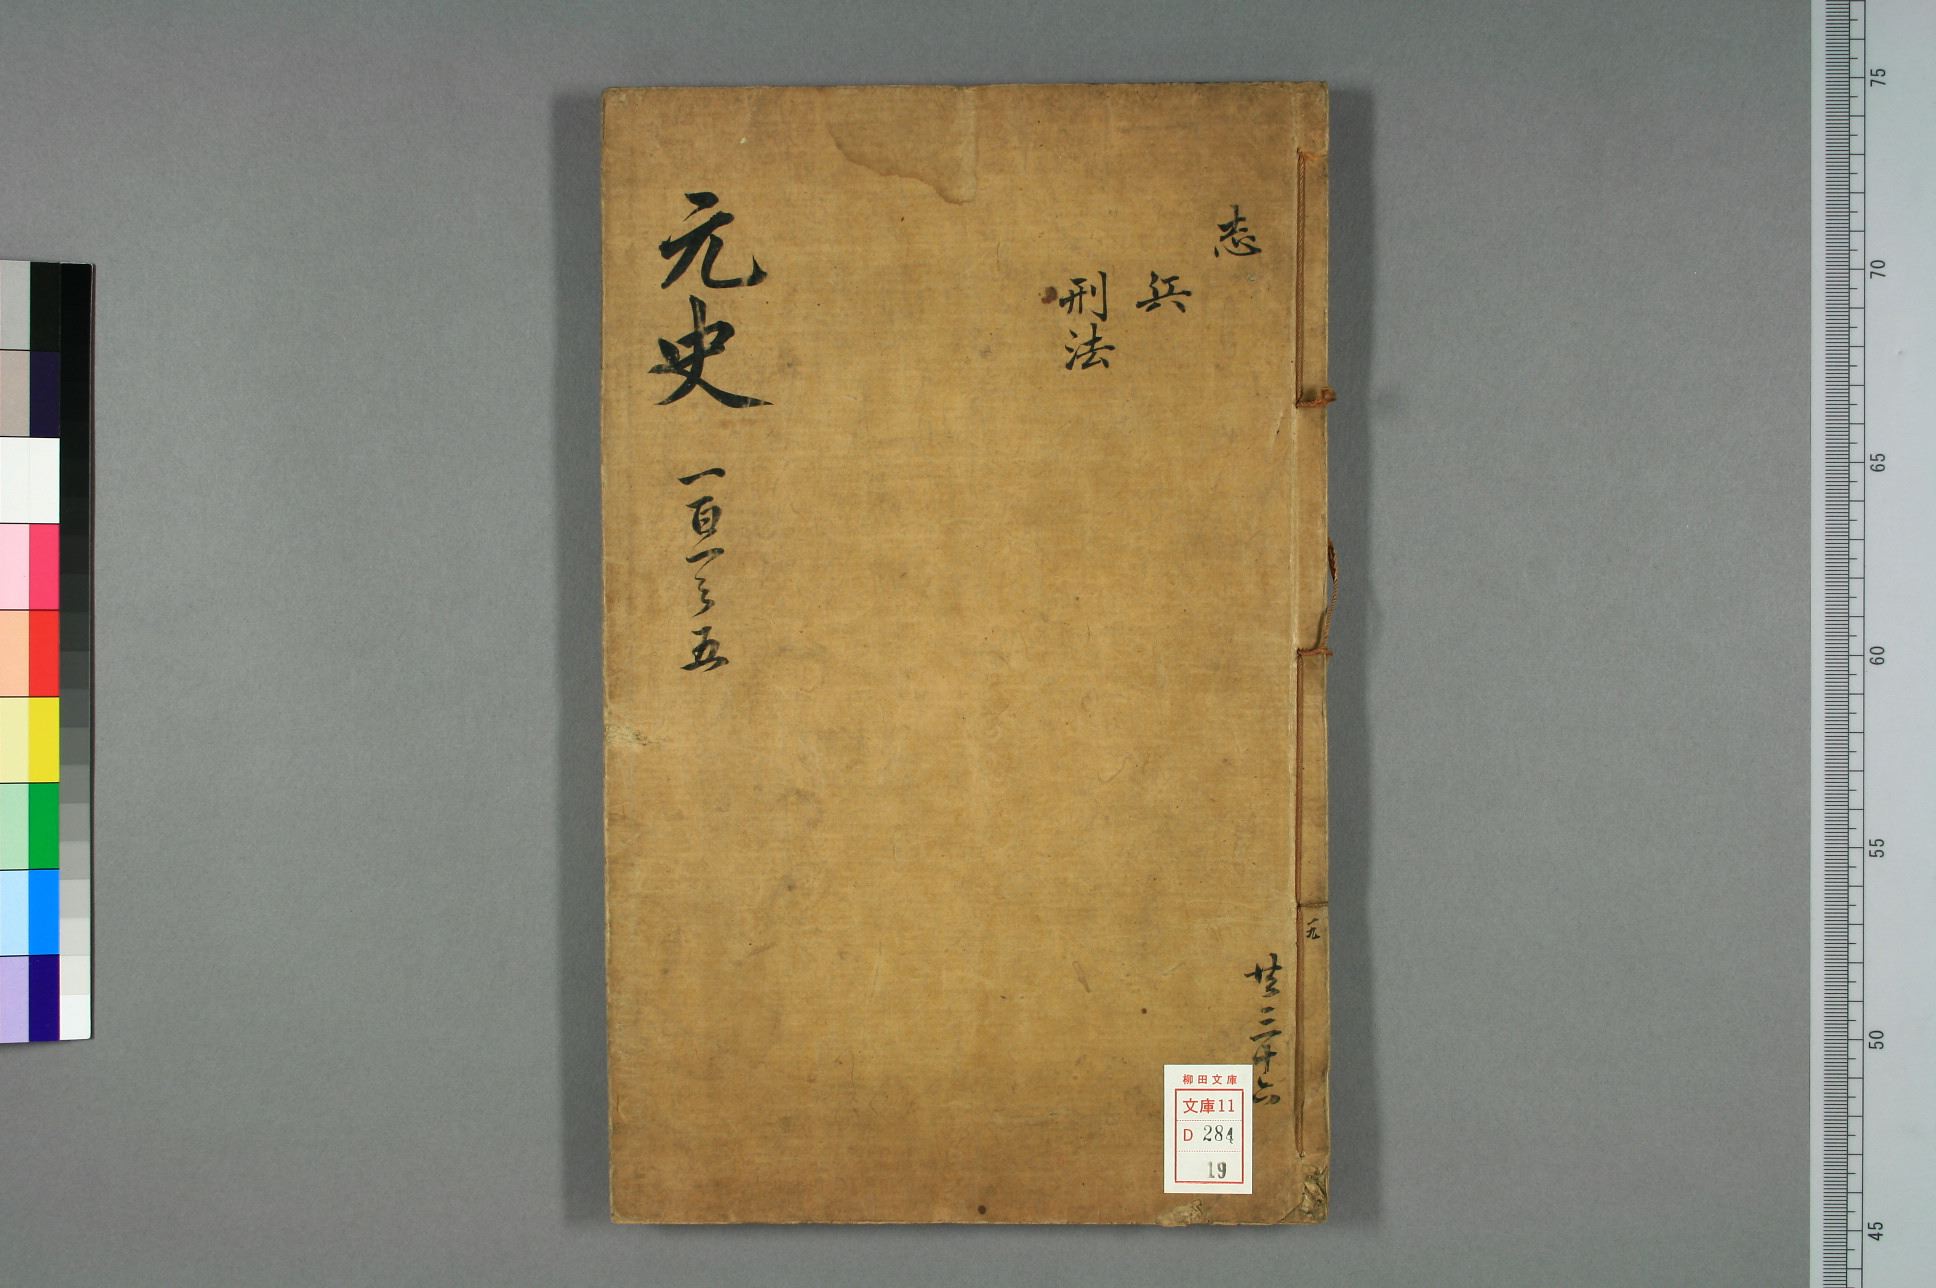 志
兵
刑法
元史 一百一之五
共三十六
柳田文庫
文庫11
D 284
19
75
70
65
60
55
50
45